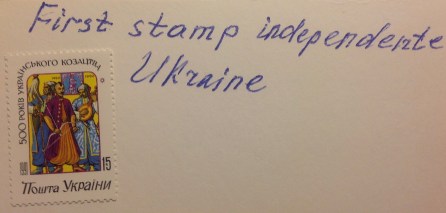 First stamp independente
Ukraine
500 РОКІВ УКРАЇНСЬКОГО КОЗАЦТВА
15
Пошта України